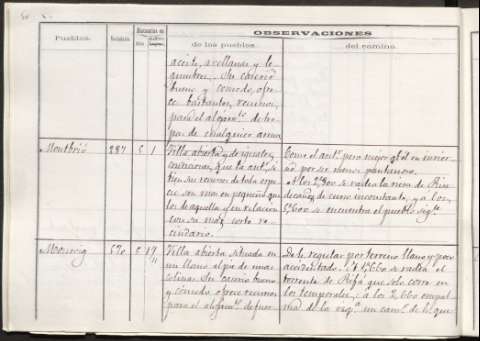 OBSERVACIONES
Pueblos.
de los pueblos.
del camino.
aceite, avellanas y le
gumbres. Su caserio
bueno y comodo, ofre
ce bastantes recursos
para el alojam.to de tro
pas de cualquier arma
Montbrió 287 6 1 Villa abierta y de iguales
condiciones que la ant.r; si
bien sus recursos de toda espe
cie son mas en pequeño que
los de aquella y en relacion
con su mas corto ve-
cindario.
Como el ant.r pero mejor en invier
no por ser menos pantanoso.
A los se vadea la riera de Riu
decañas de curso inconstante, y a los
se encuentra el pueblo sig.te
Monroig 670 Villa abierta situada en
un llano al pie de unas
colinas. Su caserio bueno
y comodo ofrece recursos
para el alojam.to de fuer
De le regular por terreno llano y poco
accidentado. se vadea el
torrente de Rifá que solo corre en
los temporales; a los 2,660 empal
ma de la izq.a un cam.o de le que